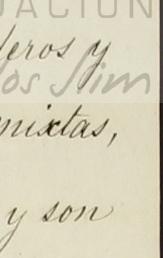 DACIÓN
deros y
los Slim
mixtas,
y son